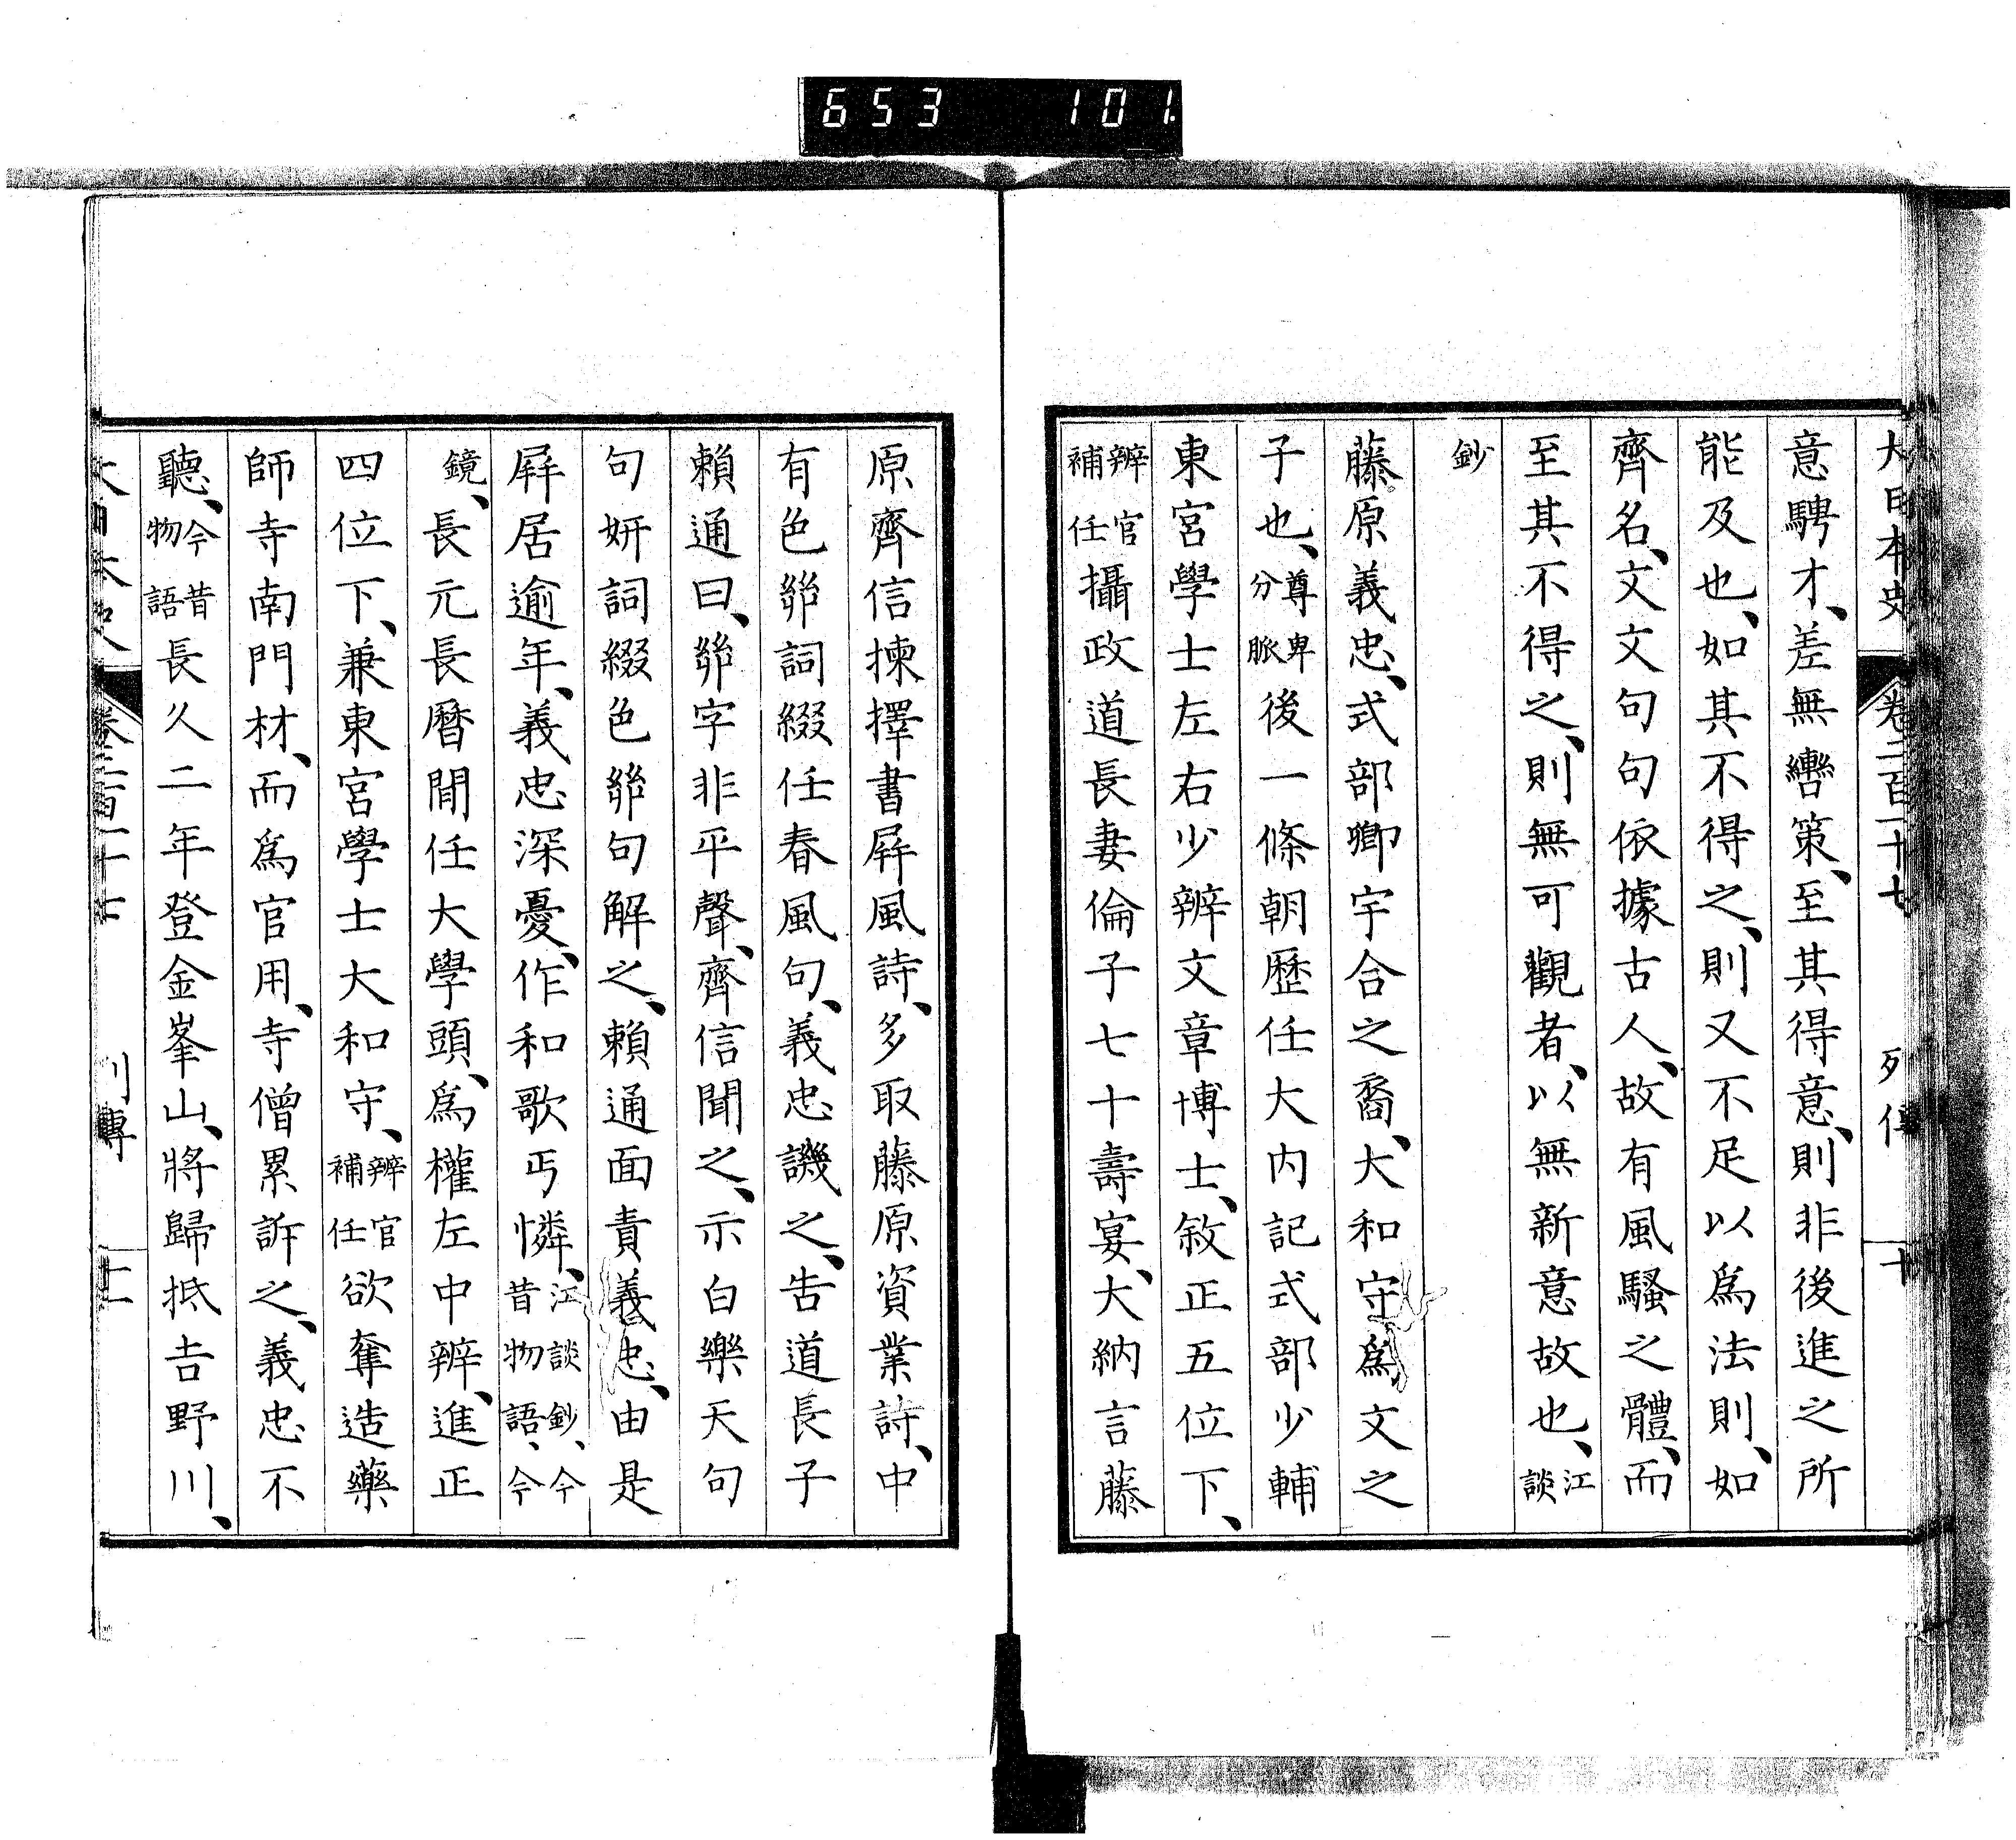 653 101.
大日本史 卷二百十七 列傳 十
意騁才、差無轡策、至其得意、則非後進之所
能及也、如其不得之、則又不足以爲法則、如
齊名、文文句句依據古人、故有風騷之體、而
至其不得之、則無可觀者、以無新意故也、江談
鈔
藤原義忠、式部卿宇合之裔、大和守爲文之
子也、尊卑分脈後一條朝歷任大内記式部少輔
東宮學士左右少辨文章博士、敘正五位下、
辨官補任攝政道長妻倫子七十壽宴、大納言藤
原齊信揀擇書屏風詩、多取藤原資業詩、中
有色絲詞綴任春風句、義忠譏之、告道長子
賴通曰、絲字非平聲、齊信聞之、示白樂天句
句妍詞綴色絲句解之、賴通面責義忠、由是
屏居逾年、義忠深憂、作和歌丐憐、江談鈔、今昔物語、今
鏡、長元長曆間任大學頭、爲權左中辨、進正
四位下、兼東宮學士大和守、辨官補任欲奪造藥
師寺南門材、而爲官用、寺僧累訴之、義忠不
聽、今昔物語長久二年登金峯山、將歸抵吉野川、
大日本史 卷二百十七 列傳 十一